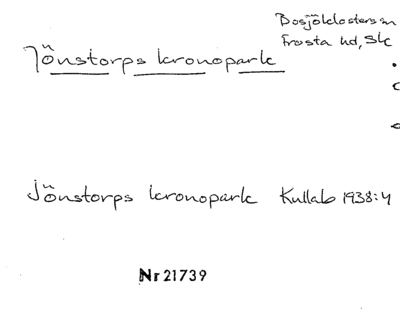 Bosjöklosters sn
Frosta hd, Sk
Jönstorps kronopark
Jönstorps kronopark Kullab 1938:4
Nr 21739